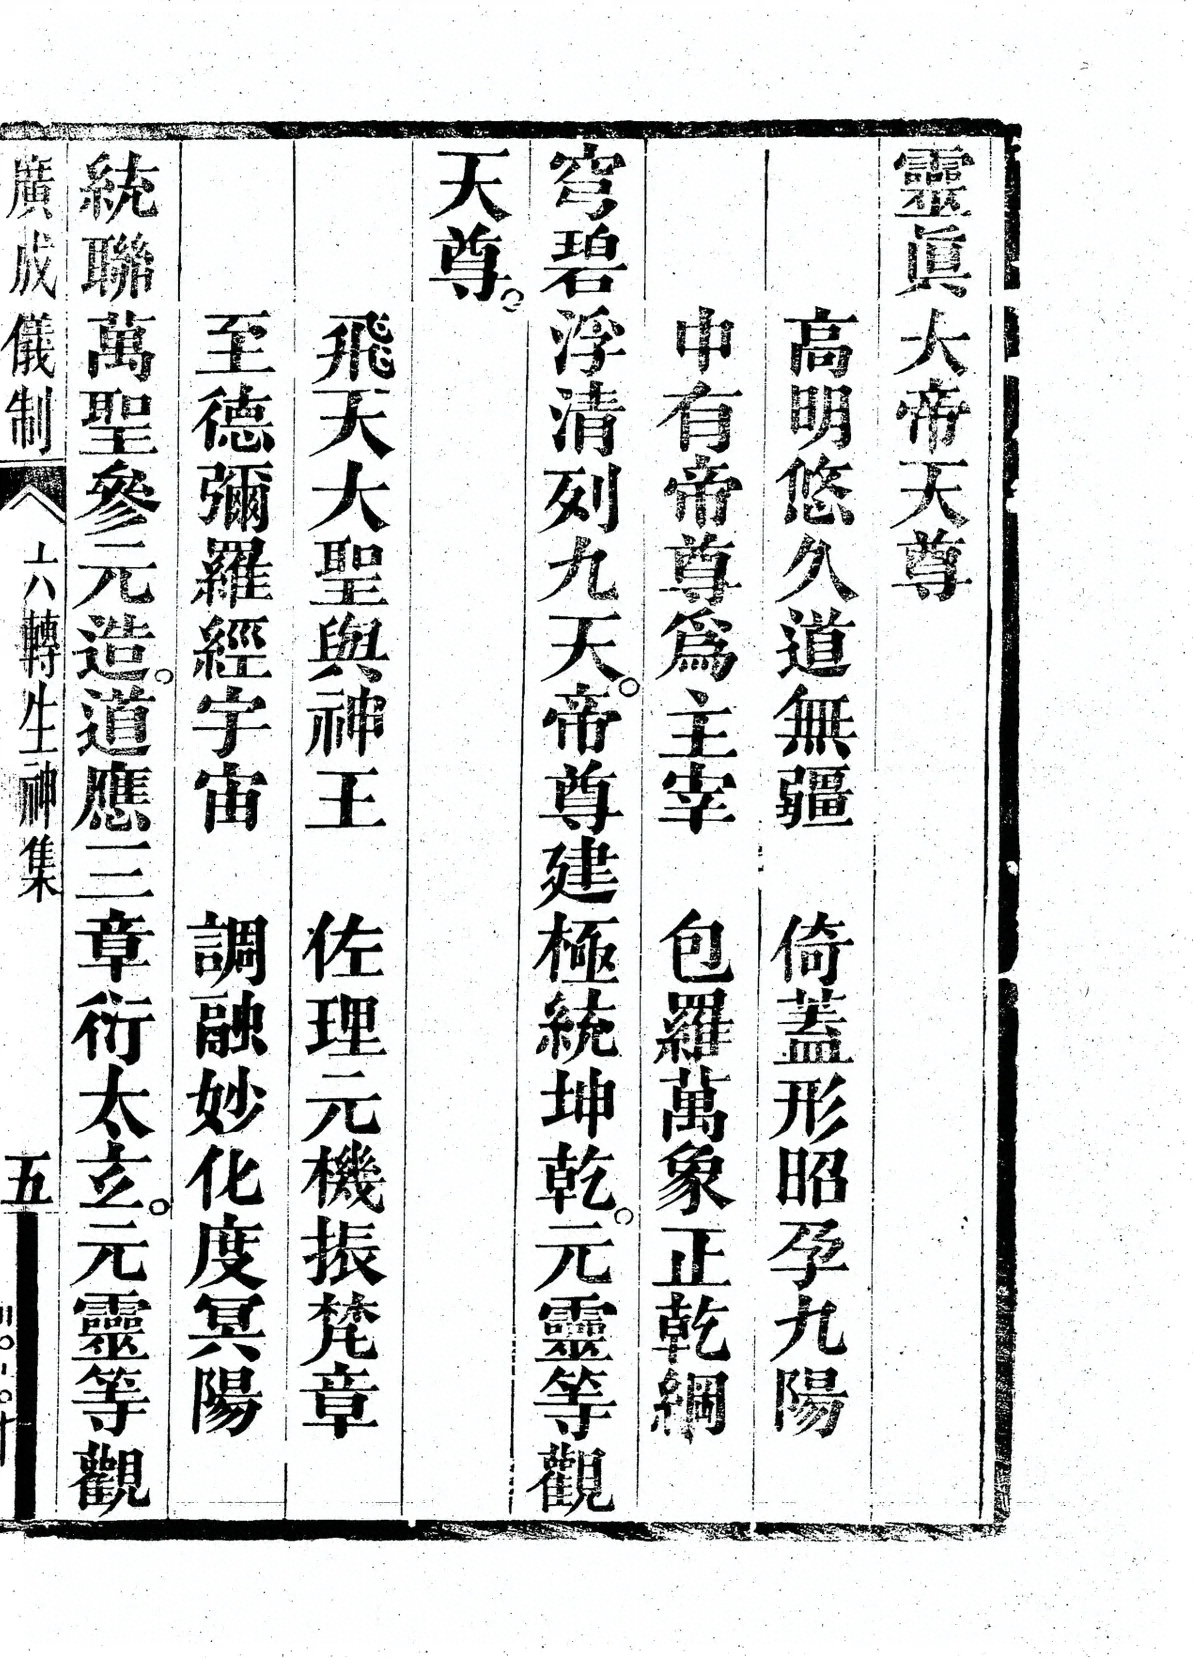 靈眞大帝天尊
高明悠久道無疆　倚蓋形昭孕九陽
中有帝尊爲主宰　包羅萬象正乾綱
穹碧浮清列九天。帝尊建極統坤乾。元靈等觀
天尊。
飛天大聖與神王　佐理元機振梵章
至德彌羅經宇宙　調融妙化度冥陽
統聯萬聖參元造。道應三章衍太玄。元靈等觀
廣成儀制　六轉生神集　五